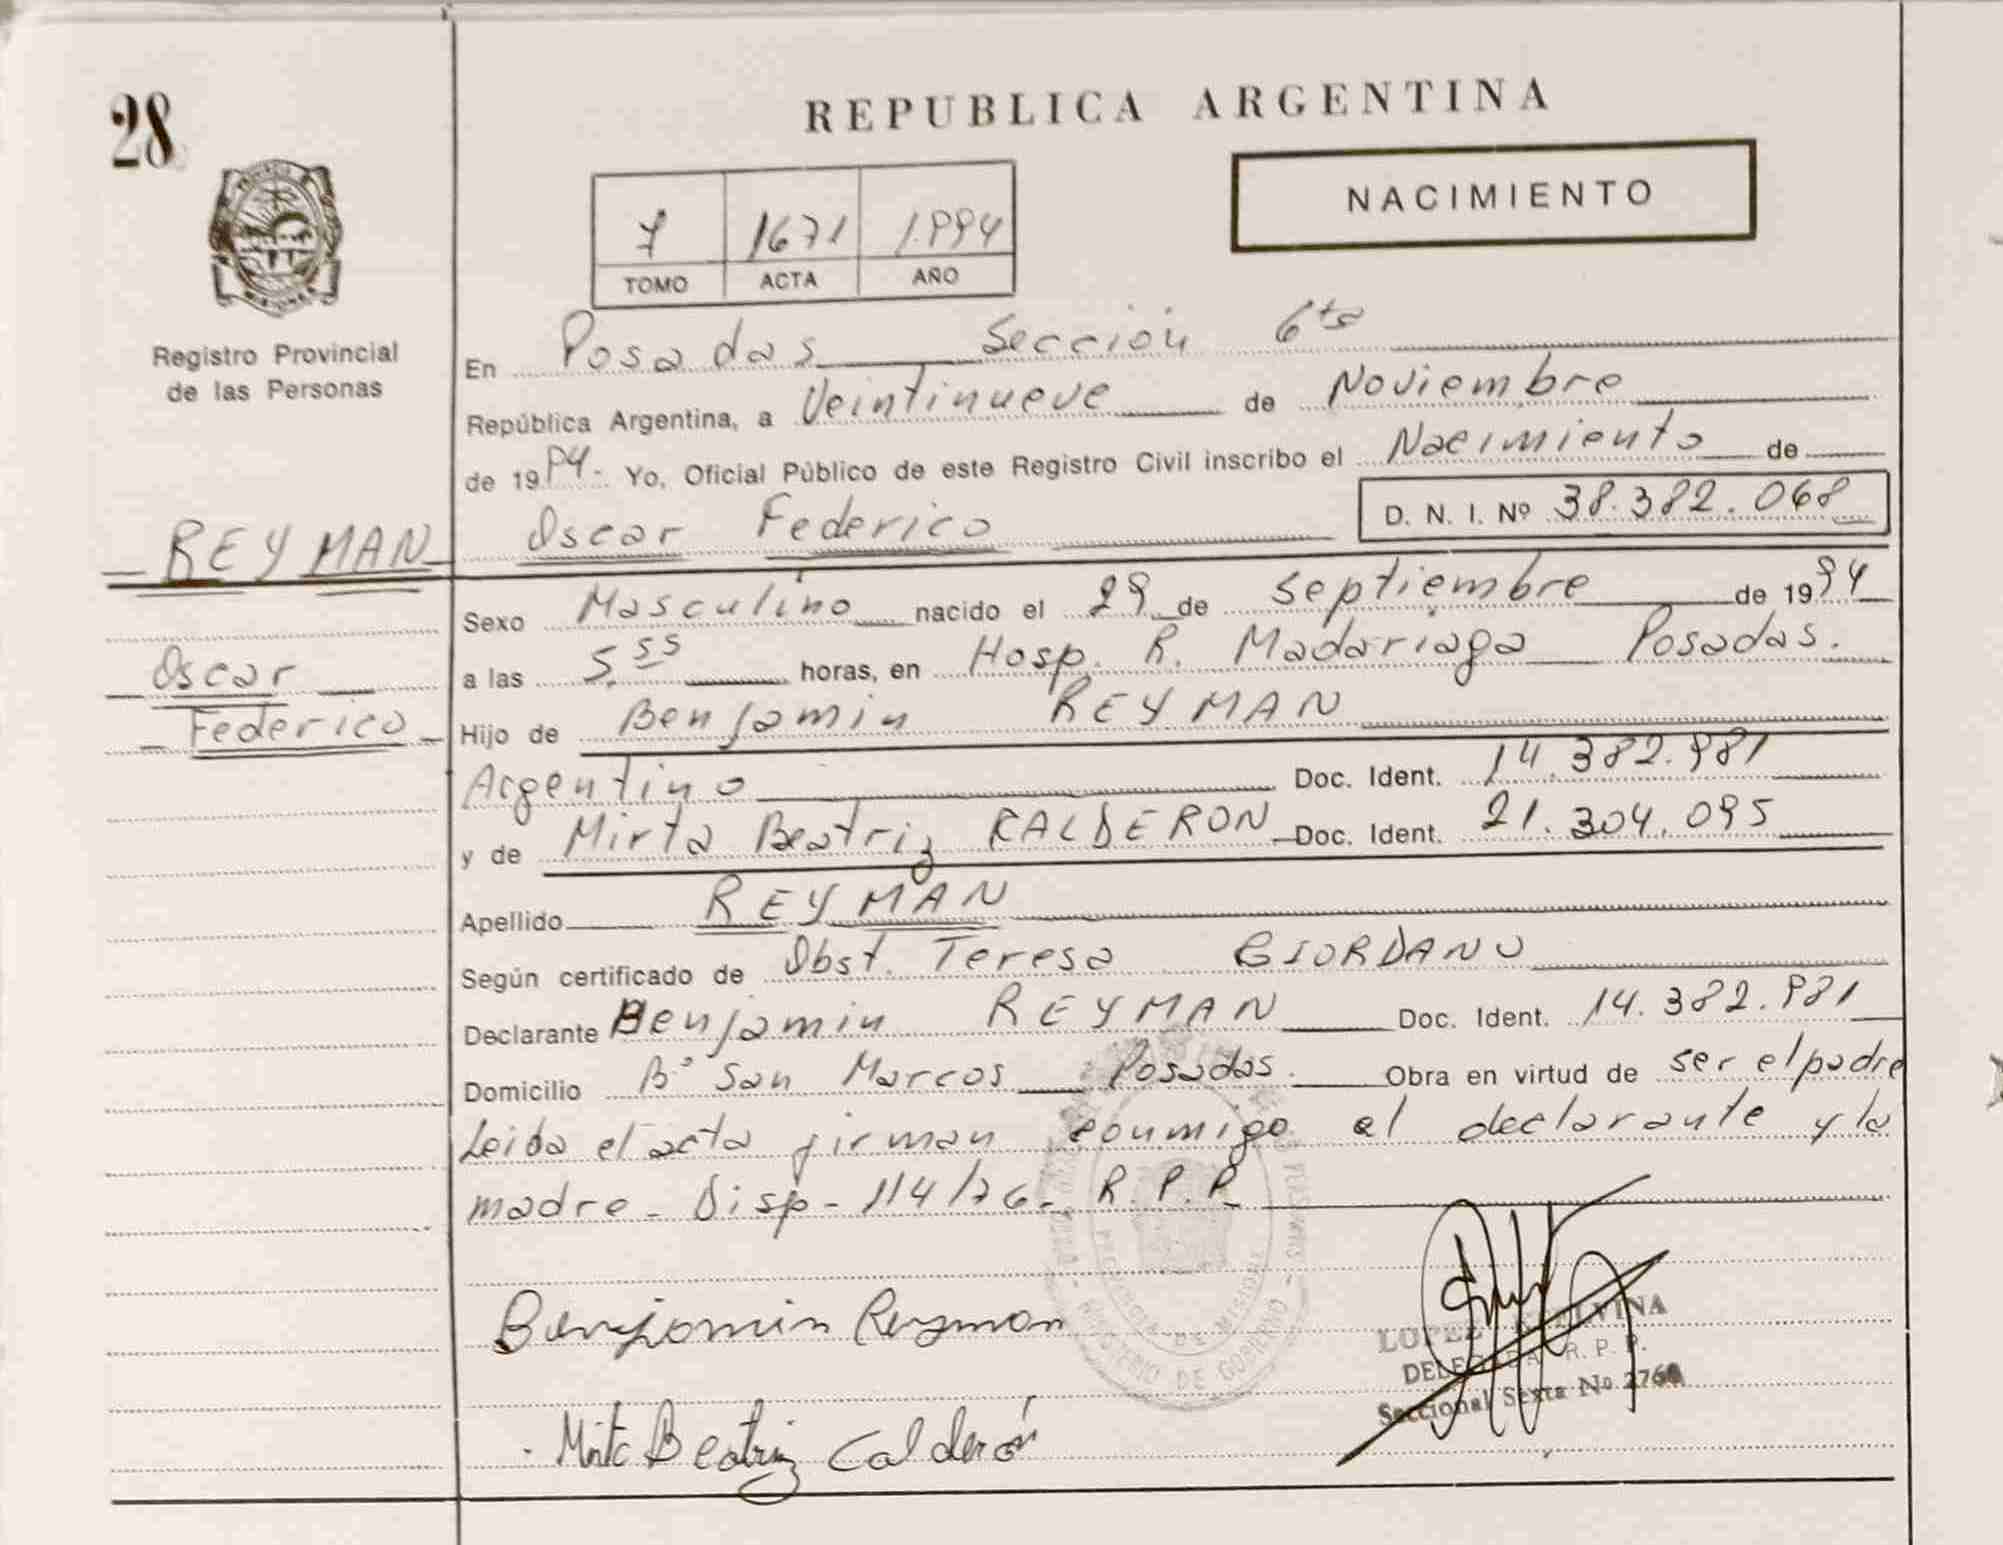 28
REPUBLICA ARGENTINA
NACIMIENTO
7 1671 1.994
TOMO ACTA AÑO
Registro Provincial
de las Personas
En Posadas Sección 6ta
República Argentina, a Veintinueve de Noviembre
de 1994. Yo, Oficial Público de este Registro Civil inscribo el Nacimiento de
REYMAN Oscar Federico D. N. I. Nº 38.382.068
Sexo Masculino nacido el 29 de Septiembre de 1994
Oscar
Federico
a las 5.55 horas, en Hosp. R. Madariaga Posadas.
Hijo de Benjamin REYMAN
Argentino Doc. Ident. 14.382.981
y de Mirta Beatriz CALDERON Doc. Ident. 21.304.095
Apellido REYMAN
Según certificado de Obst. Teresa GIORDANO
Declarante Benjamin REYMAN Doc. Ident. 14.382.981
Domicilio Bº San Marcos Posadas. Obra en virtud de ser el padre
Leida el acta firman conmigo el declarante y la
madre - Disp - 114/76 - R.P.P.
MINISTERIO DE GOBIERNO
PROVINCIA DE MISIONES
Benjamin Reyman
LOPEZ
R. P. P.
Seccional Sexta Nº
Mirta Beatriz Calderón